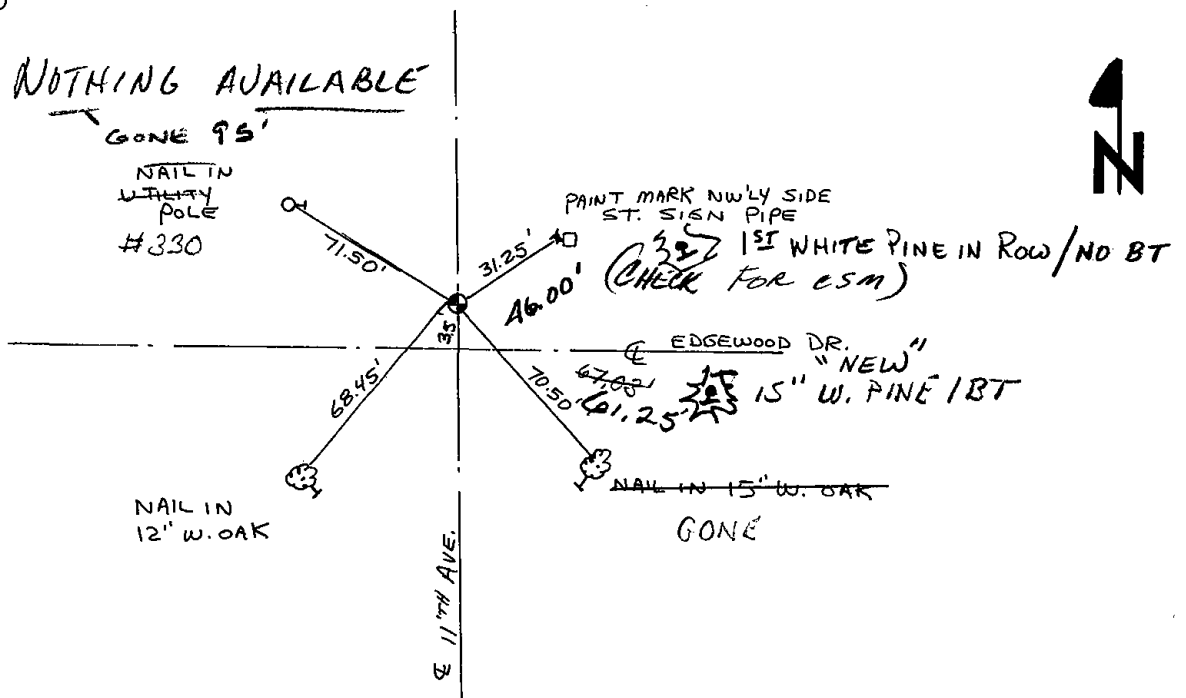 NOTHING AVAILABLE
GONE 95'
NAIL IN
UTILITY
POLE
#330
71.50'
N
PAINT MARK NW'LY SIDE
ST. SIGN PIPE
31.25'
46.00'
1ST WHITE PINE IN ROW/NO BT
(CHECK FOR CSM)
35'
℄ EDGEWOOD DR.
"NEW"
68.45'
70.50'
67.03'
61.25'
15" W. PINE/BT
NAIL IN
12" W. OAK
NAIL IN 15" W. OAK
GONE
℄ 11'TH AVE.